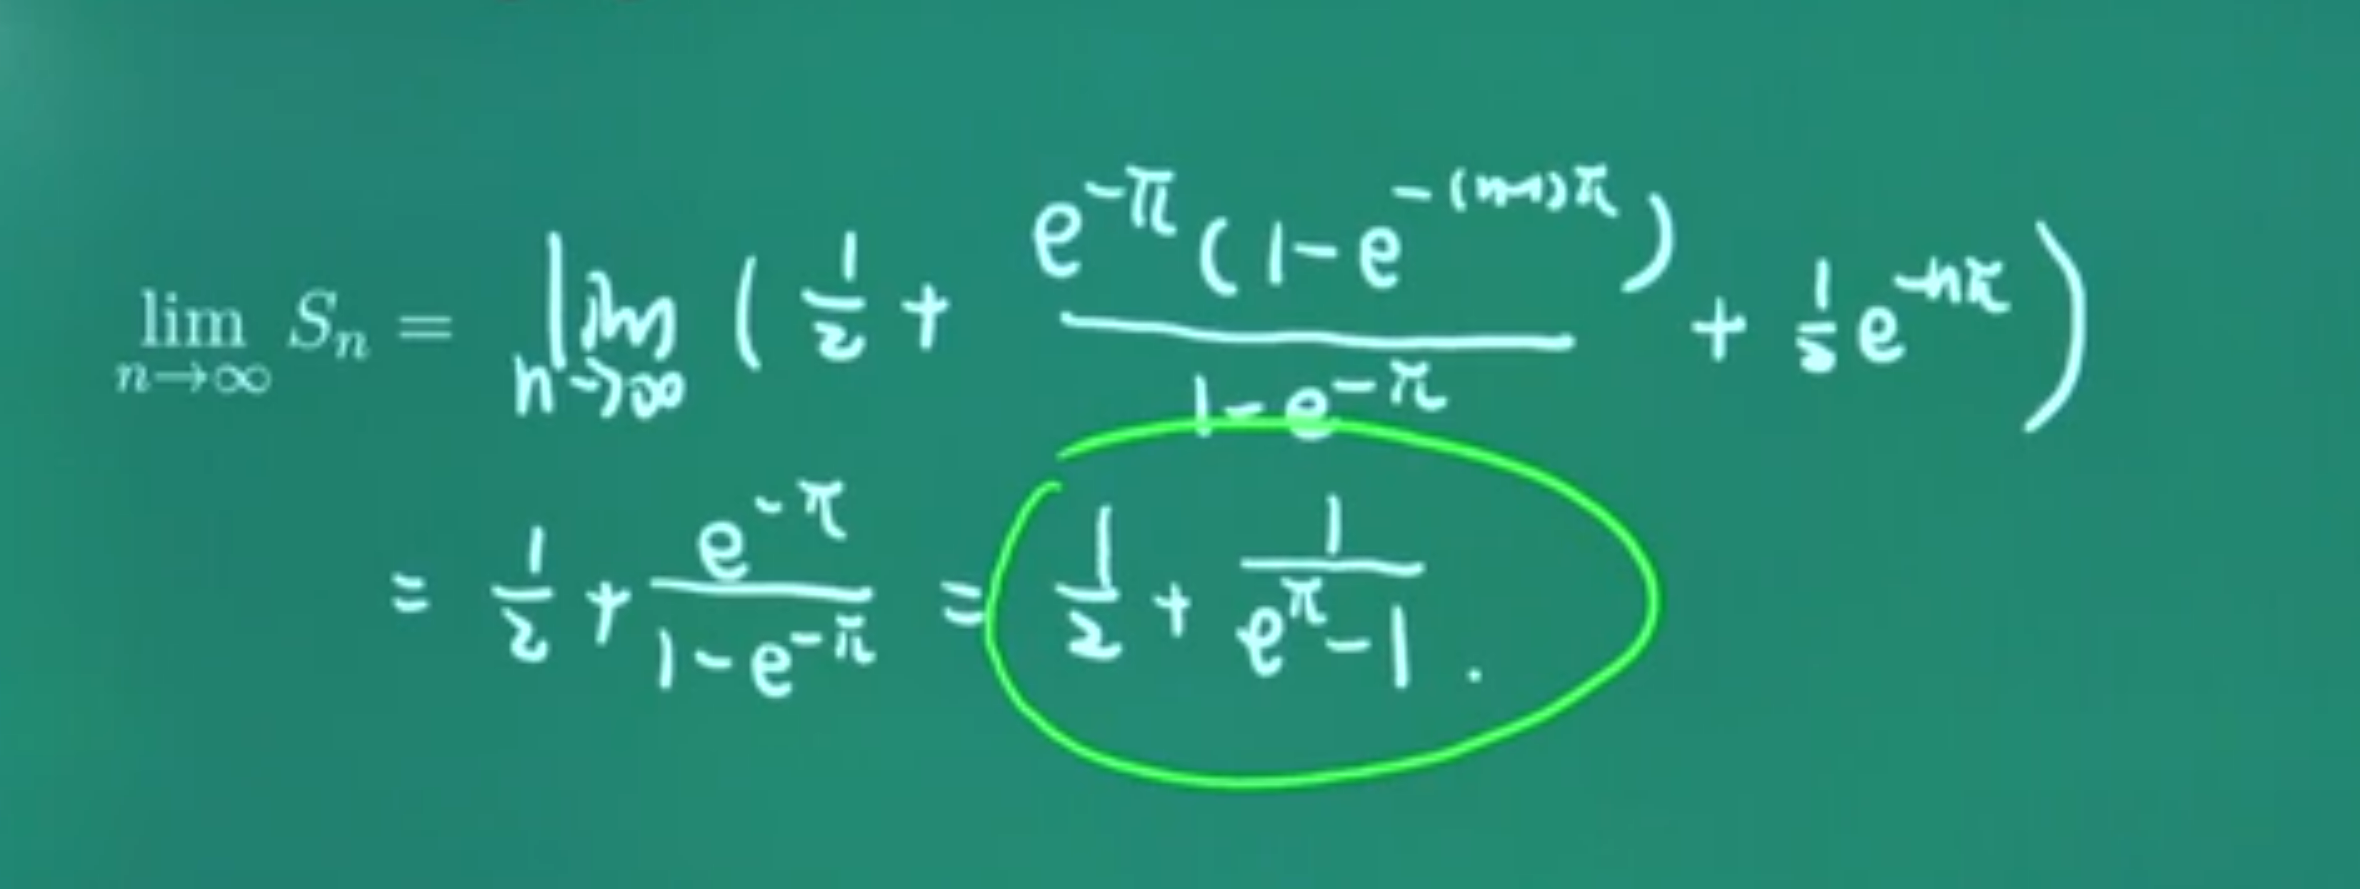 lim_{n→∞} S_n = lim_{n→∞} ( 1/2 + e^{-π}(1-e^{-(n-1)π}) / (1-e^{-π}) + 1/2 e^{-nπ} )
= 1/2 + e^{-π} / (1-e^{-π}) = 1/2 + 1 / (e^π-1) .